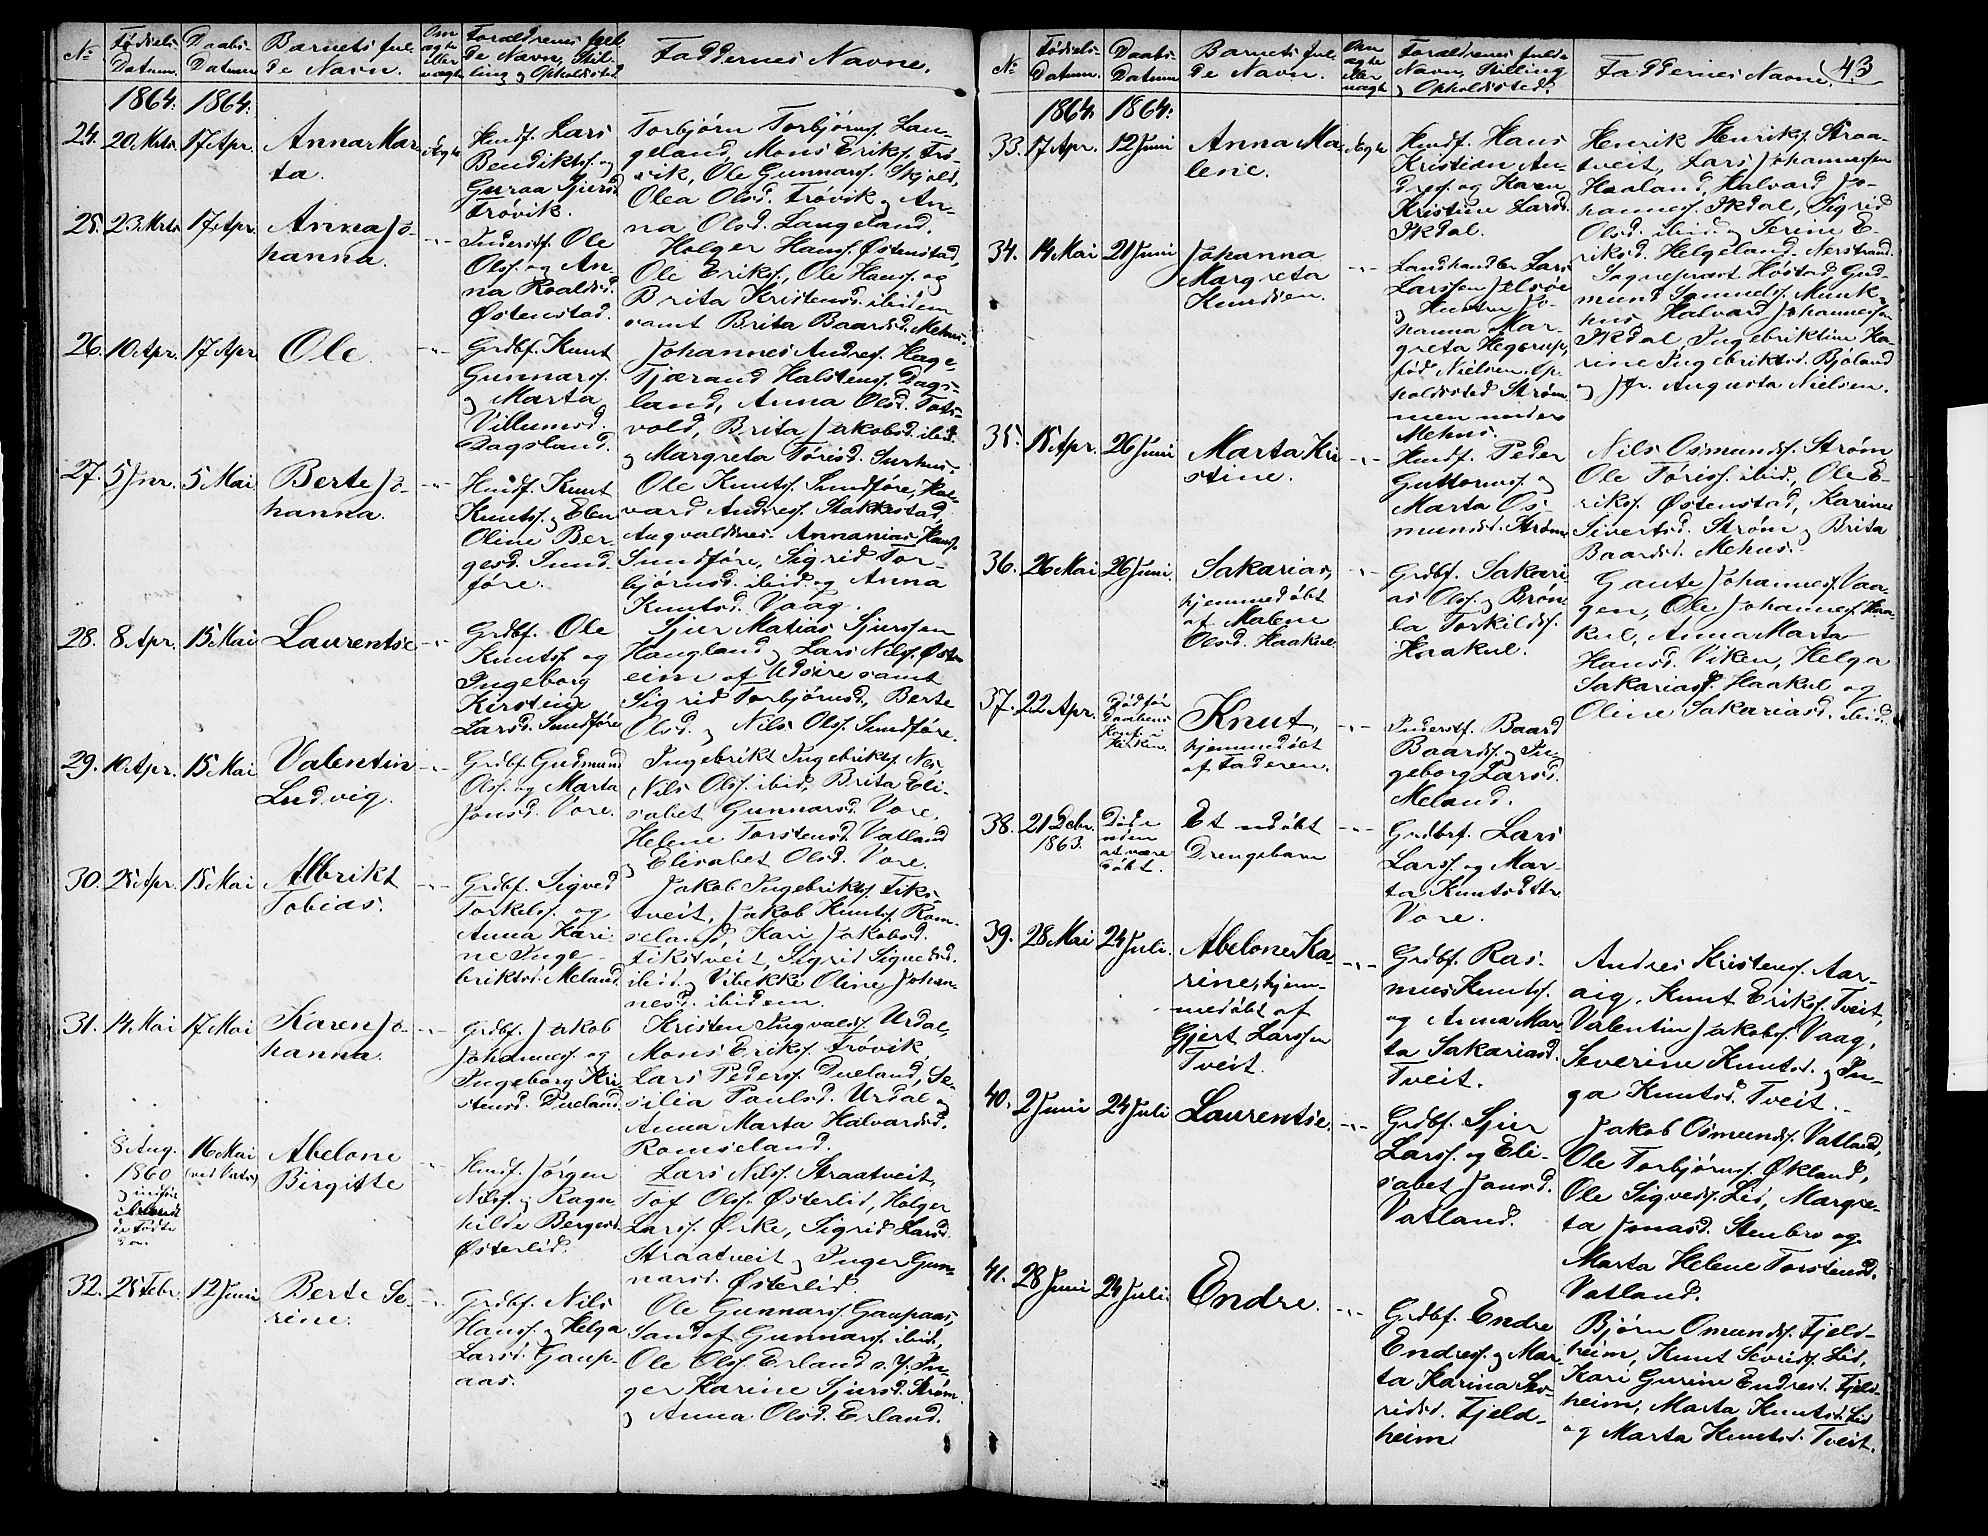 No
Fødsels-
Datum.
Daabs-
Datum
Barnets ful-
de Navn.
Om
ægte
eller
uægte
Forældrenes ful-
de Navn, Stil-
ling og Opholdssted
Faddernes Navne.
1864. 1864.
24. 20 Mrts. 17 Apr.
Anna Mar-
ta.
Ægte
Husf. Lars
Bendiktsf. og
Guraa Sjursd.
Trøvik.
Torbjørn Torbjørnsf. Lan-
geland, Mons Eriksf. Trø-
vik, Ole Gunnarsf. Skjold,
Olea Olsd. Trøvik og An-
na Olsd. Langeland.
25. 23 Mrts. 17 Apr.
Anna Jo-
hanna.
-"-
Inderstf. Ole
Olsf. og An-
na Roaldsd.
Østenstad.
Holger Hansf. Østenstad,
Ole Eriksf., Ole Hansf. og
Brita Kristensd. ibidem
samt Brita Baardsd. Mehus.
26. 10 Apr. 17 Apr.
Ole.
-"-
Grdbf. Knut
Gunnarsf.
og Marta
Villumsd.
Dagsland.
Johannes Andresf. Hage,
Tjærand Halstensf. Dags-
land, Anna Olsd. Tots-
vold, Brita Jakobsd. ibid.
og Margreta Tørisd. Surhus.
27. 5 Jnr. 5 Mai
Berte Jo-
hanna.
-"-
Husf. Knut
Knutsf. og Elen
Oline Ber-
gesd. Sund-
føre.
Ole Knutsf. Sundføre, Hal-
vard Andresf. Stakkestad,
Augvaldsnes. Annanias Hansf.
Sundføre, Sigrid Tor-
bjørnsd. ibid. og Anna
Knutsd. Vaag.
28. 8 Apr. 15 Mai
Laurentse
-"-
Grdbf. Ole
Knutsf. og
Ingeborg
Kirstine
Larsd. Sundføre
Sjur Matias Sjurssen
Haugland og Lars Nilsf. Øst-
eim af Udsire samt
Sigrid Torbjørnsd., Berte
Olsd. og Nils Olsf. Sundføre.
29. 10 Apr. 15 Mai
Valentin
Ludvig.
-"-
Grdbf. Gudmund
Olsf. og Marta
Jonsd. Vore.
Ingebrikt Ingebriktsf. Nes,
Nils Olsf. ibid., Brita Eli-
sabet Gunnarsd. Vore,
Helene Torstensd. Vatland
og Elisabet Olsd. Vore.
30. 25 Apr. 15 Mai
Albrikt
Tobias.
-"-
Grdbf. Sigved
Torkelsf. og
Anna Kari-
ne Inge-
briktsd. Meland
Jakob Ingebriktsf. Tiks-
tveit, Jakob Knutsf. Rom-
seland, Kari Jakobsd.
Tikstveit, Sigrid Signedsd.
ibid. og Vibekke Oline Johan-
nesd. ibidem.
31. 14 Mai 17 Mai
Karen Jo-
hanna.
-"-
Grdbf. Jakob
Johannesf. og
Ingeborg Kri-
stensd. Dueland.
Kristen Ingvaldsf. Urdal,
Mons Eriksf. Trøvik,
Lars Pedersf. Dueland, Se-
silia Paulsd. Urdal og
Anna Marta Halvardsd.
Romseland.
8 Aug.
1860
16 Mai
Abelone
Birgitte
-"-
Husf. Jørgen
Nilsf. og Ragn-
hilde Bergesd.
Østerlid.
Lars Nilsf. Straatveit,
Tof Olsf. Østerlid, Holger
Larsf. Ørke, Sigrid Larsd.
Straatveit og Inger Gun-
narsd. Østerlid.
32. 25 Febr. 12 Juni
Berte Se-
rine.
-"-
Grdbf. Nils
Hansf. og Helga
Larsd. Gaup-
aas.
Ole Gunnarsf. Gaupaas,
Tandof Gunnarsf. ibid.,
Ole Olsf. Erland s. f. In-
ger Karine Sjursd. Strøm
og Anna Olsd. Erland.
No
Fødsels-
Datum.
Daabs-
Datum
Barnets ful-
de Navn.
Om
ægte
eller
uægte
Forældrenes fulde
Navn, Stilling
og Opholdssted.
Faddernes Navne.
43
1864. 1864.
33. 17 Apr. 12 Juni
Anna Ma-
lene.
Ægte
Husf. Hans
Kristian An-
dresf. og Karen
Kristine Larsd.
Skdal.
Henrik Henriksf. Straa-
tveit, Lars Johannessen
Haaland, Halvard Jo-
hannesf. Skdal, Sigrid
Olsd. ibid. og Serine E-
riksd. Helgeland. Nerstrand.
34. 14 Mai 21 Juni
Johanna
Margreta
Knudsen.
-"-
Landhandler Lars
Larssen Jelsøe
og Hustru Jo-
hanna Mar-
greta Hegerup,
fød Nielsen, Op-
holdssted Strøm-
men under
Mehus.
Sogneprest Høstad, Gud-
mund Samuelsf. Munk-
hus, Halvard Johannessen
Skdal, Ingebriktine Ka-
rine Ingebriktsd. Bjoland
og Jfr. Augusta Nielsen.
35. 15 Apr. 26 Juni
Marta Kri-
stine.
-"-
Husf. Peder
Guttormsf. og
Marta Os-
mundsd. Strøm
Nils Osmundsf. Strøm
Ole Tørisf. ibid., Ole E-
riksf. Østenstad, Karine
Sivertsd. Strøm og Brita
Baardsd. Mehus.
36. 26 Mai 26 Juni.
Sakarias,
hjemmedøbt
af Malene
Olsd. Haakul.
-"-
Grdbf. Sakari-
as Olsf. og Brøn-
la Torkildsd.
Haakul.
Gaute Johannesf. Vaa-
gen, Ole Johannesf. Haa-
kul, Anna Marta
Hansd. Viken, Helga
Sakariasd. Haakul og
Oline Sakariasd. ibid.
37. 22 Apr.
Død før
Daabens
Konf. i
Kirken.
Knut,
hjemmedøbt
af Faderen.
-"-
Inderstf. Baard
Baardsf. og In-
geborg Larsd.
Meland.
38. 21 Debr.
1863.
Døde
uden
at være
døbt.
Et udøbt
Drengebarn
-"-
Grdbrf. Lars
Larsf. og Mar-
ta Knutsdtr.
Vore.
39. 28 Mai 24 Juli.
Abelone Ka-
rine, hjem-
medøbt af
Gjert Larssen
Tveit.
-"-
Grdbf. Ras-
mus Knutsf.
og Anna Mar-
ta Sakariasd.
Tveit.
Andres Kristensf. Aar-
aig, Knut Eriksf. Tveit,
Valentin Jakobsf. Vaag,
Severine Knutsd. og In-
ga Knutsd. Tveit.
40. 2 Juni 24 Juli
Laurentse.
-"-
Grdbf. Sjur
Larsf. og Eli-
sabet Jonsd.
Vatland.
Jakob Osmundsf. Vatland,
Ole Torbjørnsf. Økland,
Ole Sigvedsf. Lid, Margre-
ta Jonasd. Stenbro og
Marta Helene Torstensd.
Vatland.
41. 28 Juni 24 Juli.
Endre.
-"-
Grdbf. Endre
Endresf. og Mar-
ta Karina Sev-
ridsd. Fjeld-
heim
Bjørn Omundsf. Fjeld-
heim, Knut Sevridsf. Lid,
Kari Gurine Endresd. Fjeld-
heim, Marta Knutsd. Lid
og Marta Knutsd. Tveit.